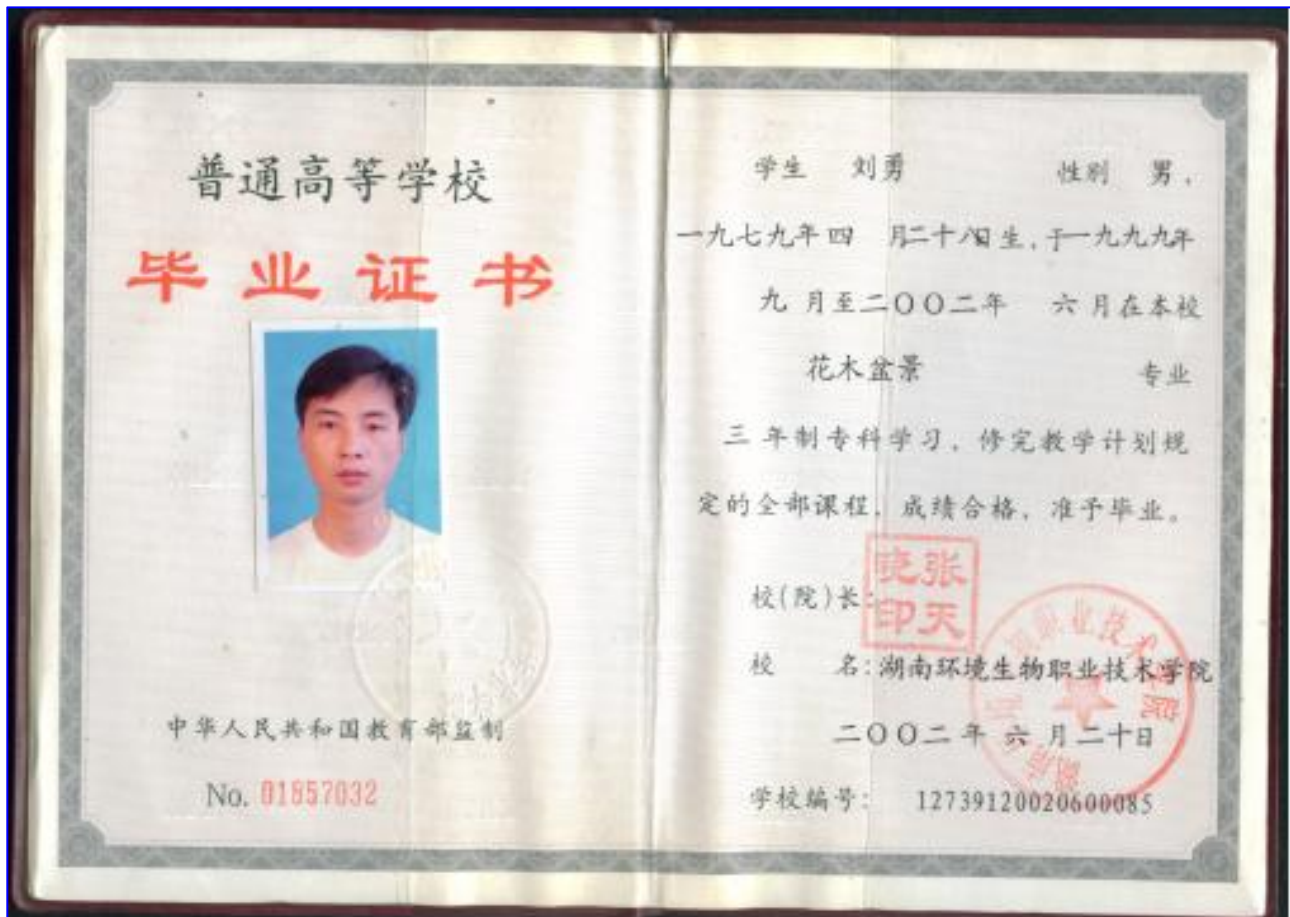 普通高等学校
毕业证书
中华人民共和国教育部监制
No. 01857032
学生 刘勇 性别 男,
一九七九年四 月二十八日生,于一九九九年
九 月至二〇〇二年 六 月在本校
花木盆景 专业
三 年制专科学习,修完教学计划规
定的全部课程,成绩合格,准予毕业。
校(院)长:
校 名:湖南环境生物职业技术学院
二〇〇二年 六 月二十日
学校编号: 12739120020600085